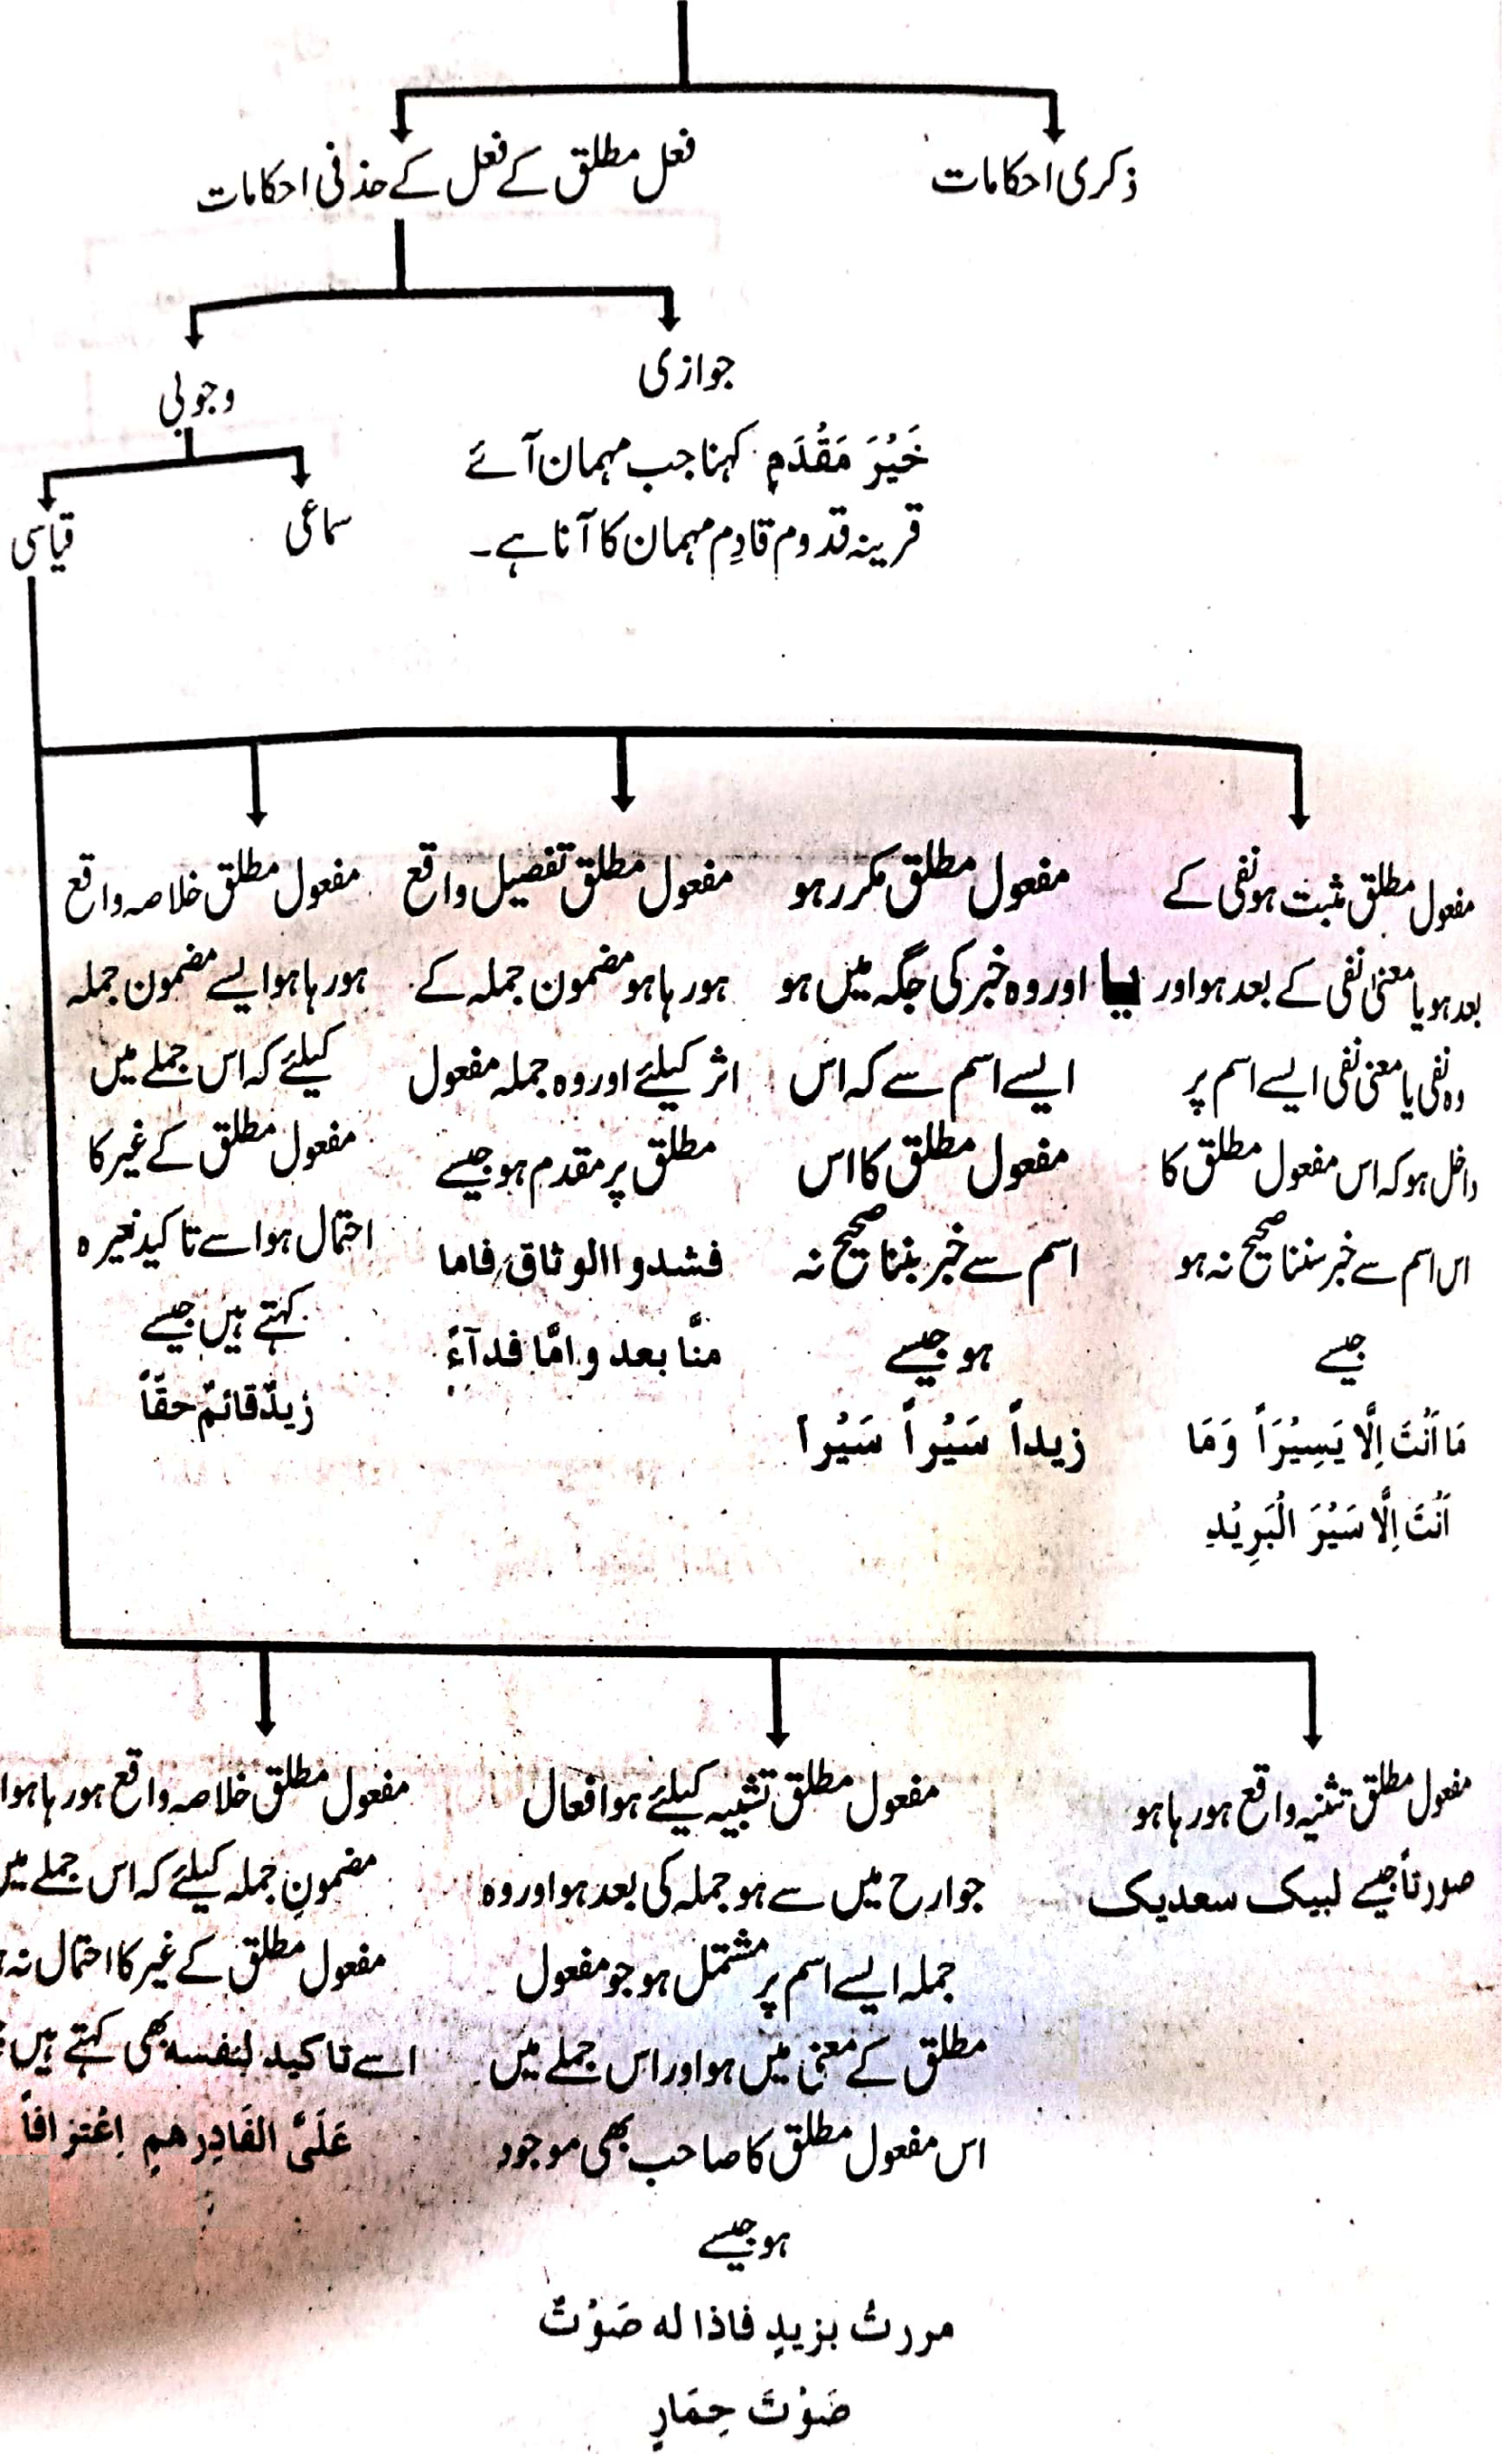 ذکری احکامات
فعل مطلق کے فعل کے حذفی احکامات
جوازی
خَیْرَ مَقْدَمٍ کہنا جب مہمان آئے
قرینہ قدوم قادِم مہمان کا آنا ہے۔
وجوبی
سماعی
قیاسی
مفعول مطلق مثبت ہو نفی کے
بعد ہو یا معنیٰ نفی کے بعد ہو اور
وہ نفی یا معنی نفی ایسے اسم پر
داخل ہو کہ اس مفعول مطلق کا
اس اسم سے خبر بننا صحیح نہ ہو
جیسے
مَا اَنْتَ اِلَّا یَسِیْرَاً وَمَا
اَنْتَ اِلَّا سَیْرَ الْبَرِیْدِ
مفعول مطلق مکرر ہو
یا اور وہ خبر کی جگہ میں ہو
ایسے اسم سے کہ اس
مفعول مطلق کا اس
اسم سے خبر بننا صحیح نہ
ہو جیسے
زیداً سَیْراً سَیْراً
مفعول مطلق تفصیل واقع
ہو رہا ہو مضمون جملہ کے
اثر کیلئے اور وہ جملہ مفعول
مطلق پر مقدم ہو جیسے
فشدو االوثاق فاما
منًّا بعد وامَّا فدآءً
مفعول مطلق خلاصہ واقع
ہو رہا ہو ایسے مضمون جملہ
کیلئے کہ اس جملے میں
مفعول مطلق کے غیر کا
احتمال ہو اسے تاکید لغیرہ
کہتے ہیں جیسے
زیدٌ قائمٌ حقًاً
مفعول مطلق تثنیہ واقع ہو رہا ہو
صورتاً جیسے لبیک سعدیک
مفعول مطلق تشبیہ کیلئے ہو افعال
جوارح میں سے ہو جملہ کی بعد ہو اور وہ
جملہ ایسے اسم پر مشتمل ہو جو مفعول
مطلق کے معنیٰ میں ہو اور اس جملے میں
اس مفعول مطلق کا صاحب بھی موجود
ہو جیسے
مررتُ بزیدٍ فاذا لہ صَوْتٌ
صَوْتَ حِمَارٍ
مفعول مطلق خلاصہ واقع ہو رہا ہو
مضمونِ جملہ کیلئے کہ اس جملے میں
مفعول مطلق کے غیر کا احتمال نہ
اسے تاکید لنفسہ بھی کہتے ہیں
عَلَیَّ الفَادِرهمٍ اِعْتَرافاً